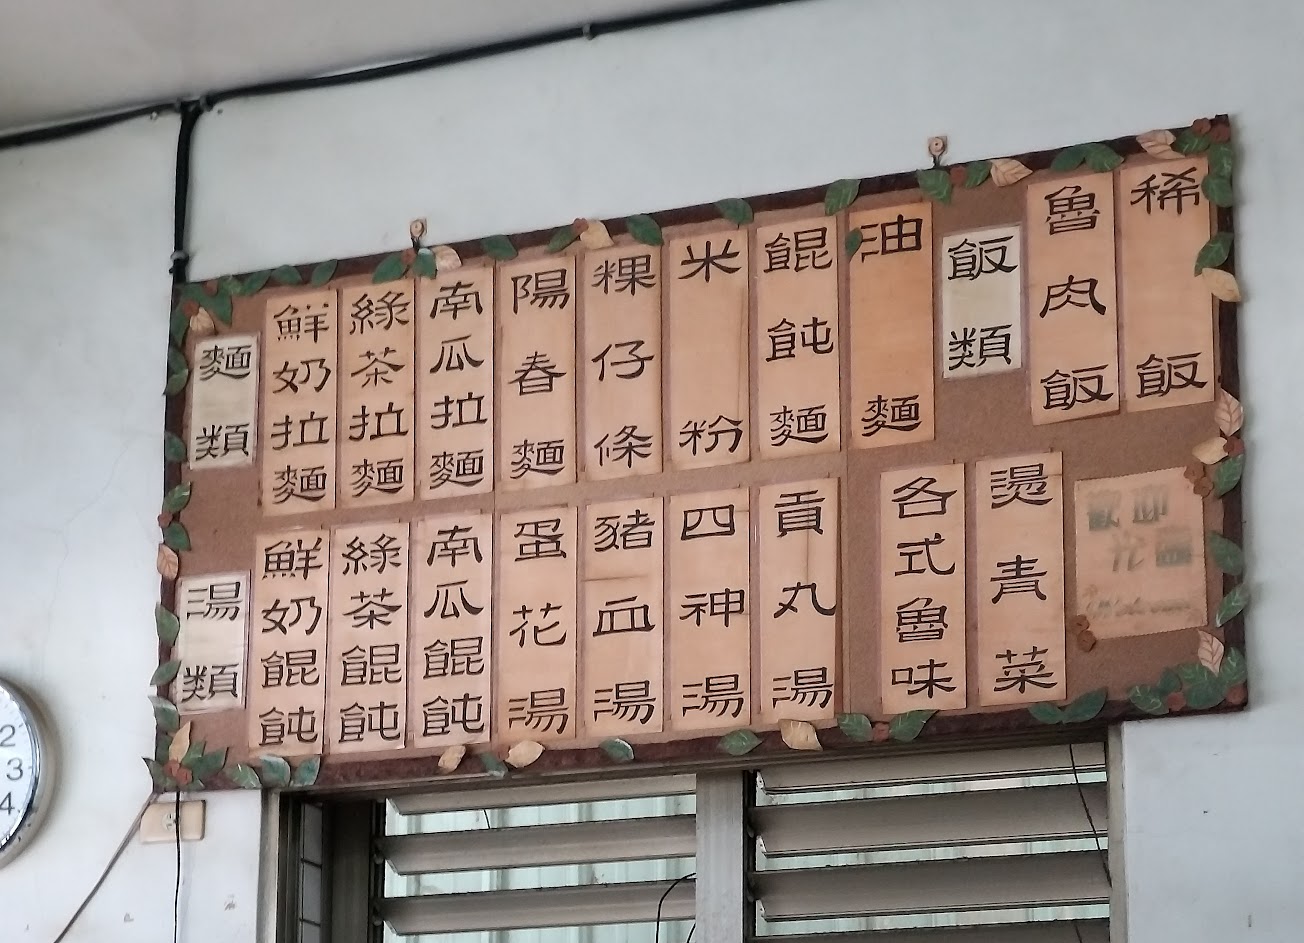 麵類
鮮奶拉麵
綠茶拉麵
南瓜拉麵
陽春麵
粿仔條
米粉
餛飩麵
油麵
飯類
魯肉飯
稀飯
湯類
鮮奶餛飩
綠茶餛飩
南瓜餛飩
蛋花湯
豬血湯
四神湯
貢丸湯
各式魯味
燙青菜
歡迎
光臨
2
3
4